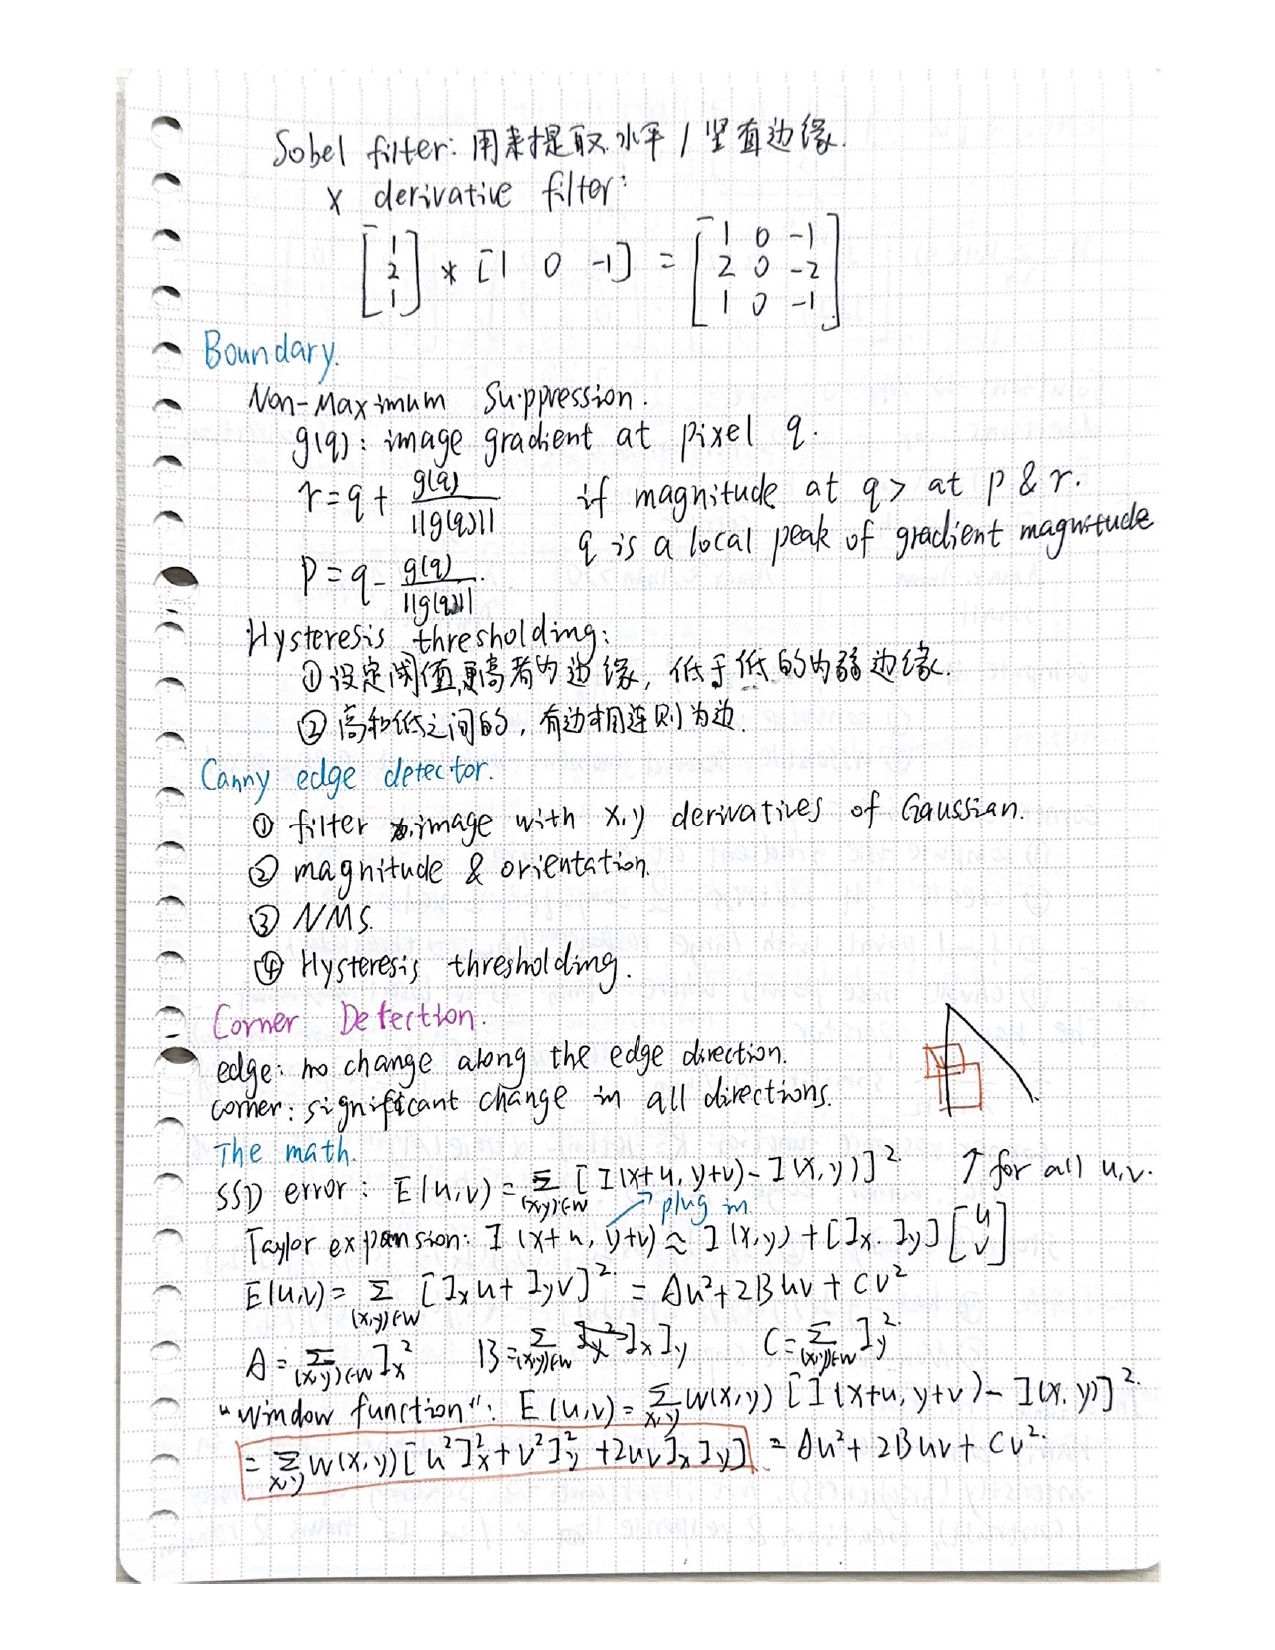 Sobel filter: 用来提取水平/竖直边缘.
x derivative filter:
[1 2 1] * [1 0 -1] = [1 0 -1
2 0 -2
1 0 -1]
Boundary.
Non-Maximum Suppression.
g(q): image gradient at pixel q.
r = q + g(q)/||g(q)|| if magnitude at q > at p & r.
q is a local peak of gradient magnitude
p = q - g(q)/||g(q)||.
Hysteresis thresholding:
① 设定阈值,更高者为边缘, 低于低的为弱边缘.
② 高和低之间的, 有边相连则为边.
Canny edge detector.
① filter image with x,y derivatives of Gaussian.
② magnitude & orientation.
③ NMS.
④ Hysteresis thresholding.
Corner Detection.
edge: no change along the edge direction.
corner: significant change in all directions.
The math.
SSD error: E(u,v) = Σ(x,y)∈W [I(x+u, y+v) - I(x,y)]² ↑ for all u,v.
↗ plug in
Taylor expansion: I(x+u, y+v) ≈ I(x,y) + [Ix Iy] [u v]
E(u,v) = Σ(x,y)∈W [Ix u + Iy v]² = Au² + 2Buv + Cv²
A = Σ(x,y)∈W Ix² B = Σ(x,y)∈W Ix Iy C = Σ(x,y)∈W Iy².
"window function": E(u,v) = Σx,y w(x,y) [I(x+u, y+v) - I(x,y)]².
= Σx,y w(x,y) [u²Ix² + v²Iy² + 2uv Ix Iy] = Au² + 2Buv + Cv².